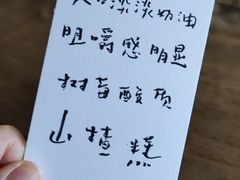 淡淡奶油
咀嚼感明显
树莓酸质
山楂糕